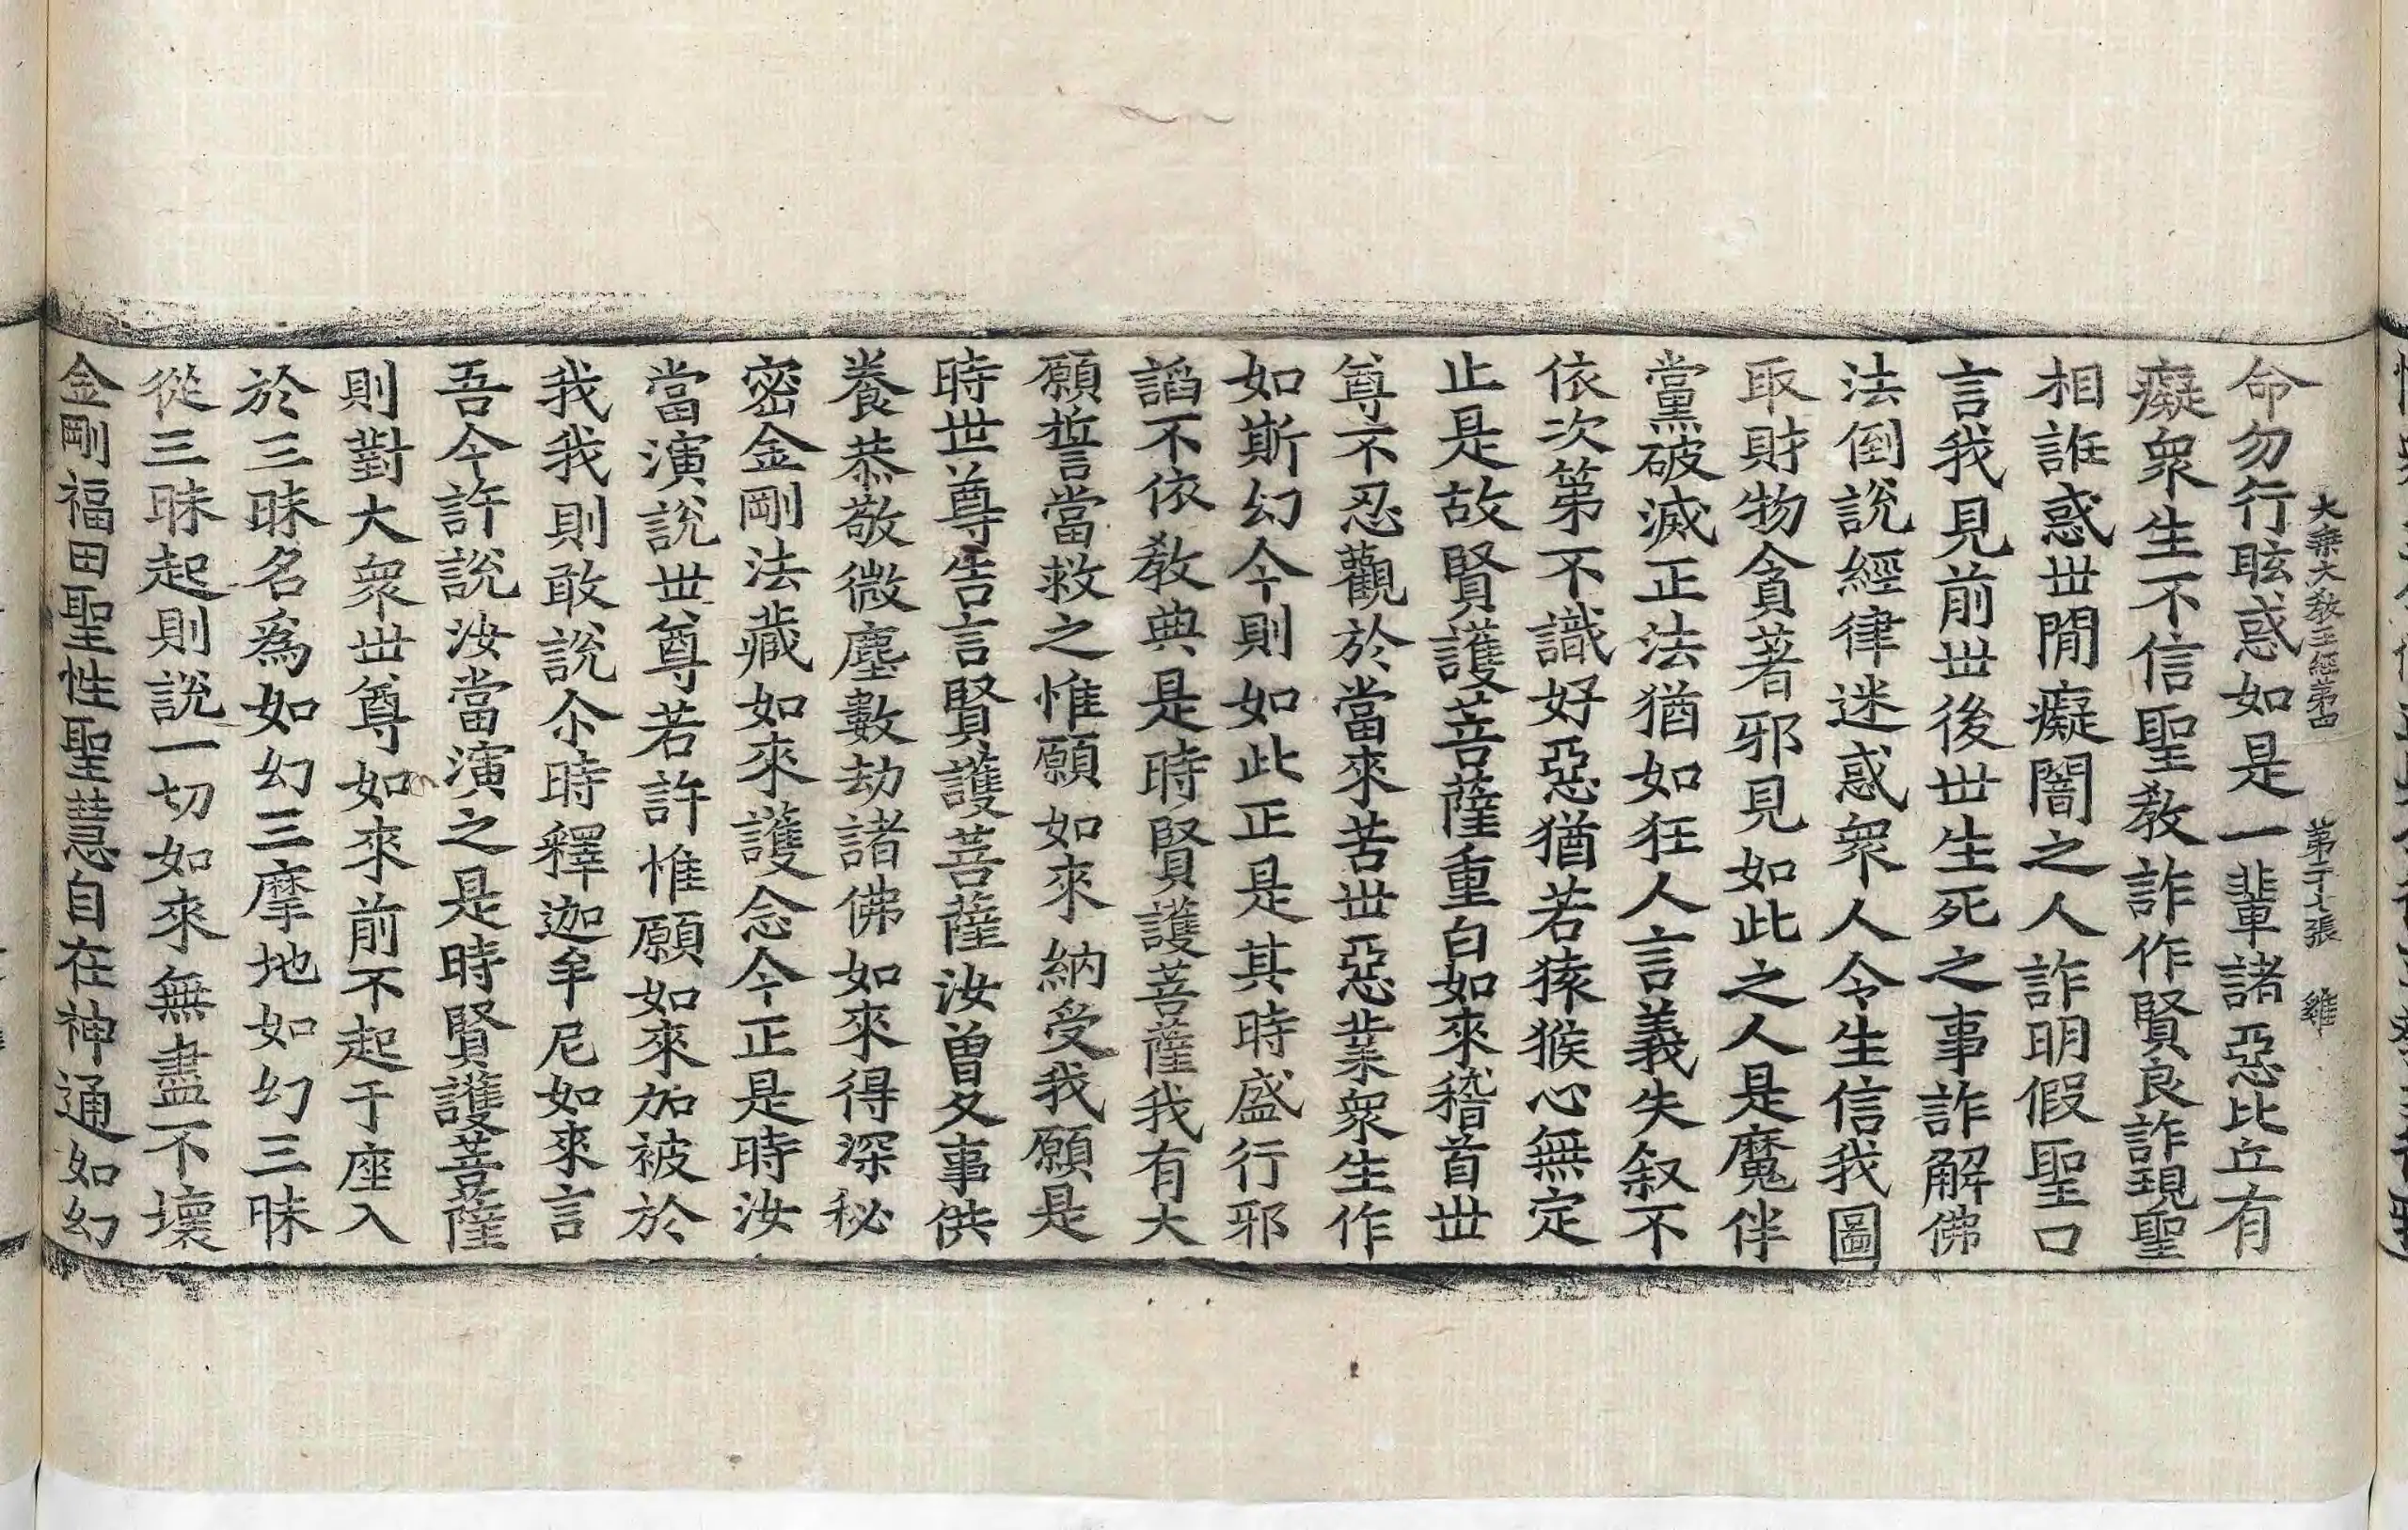 大乘大教王經第四 第二十張 雞
命勿行眩惑如是一輩諸惡比丘有
癡衆生不信聖教詐作賢良詐現聖
相誑惑世間癡闇之人詐明假聖口
言我見前世後世生死之事詐解佛
法倒說經律迷惑衆人令生信我圖
取財物貪著邪見如此之人是魔伴
黨破滅正法猶如狂人言義失叙不
依次第不識好惡猶若猿猴心無定
止是故賢護菩薩重白如來稽首世
尊不忍觀於當來苦世惡業衆生作
如斯幻今則如此正是其時盛行邪
謟不依教典是時賢護菩薩我有大
願誓當救之惟願如來納受我願是
時世尊告言賢護菩薩汝曾久事供
養恭敬微塵數劫諸佛如來得深秘
密金剛法藏如來護念今正是時汝
當演說世尊若許惟願如來加被於
我我則敢說尒時釋迦牟尼如來言
吾今許說汝當演之是時賢護菩薩
則對大衆世尊如來前不起于座入
於三昧名爲如幻三摩地如幻三昧
從三昧起則說一切如來無盡不壞
金剛福田聖性聖慧自在神通如幻